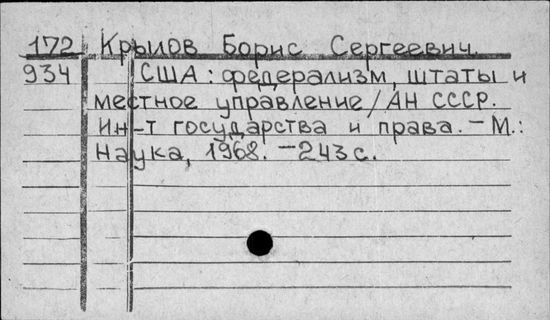 172 Крылов Борис Сергеевич.
934 США: федерализм, штаты и
местное управление/АН СССР.
Ин-т государства и права. – М.:
Наука, 1968. – 243 с.